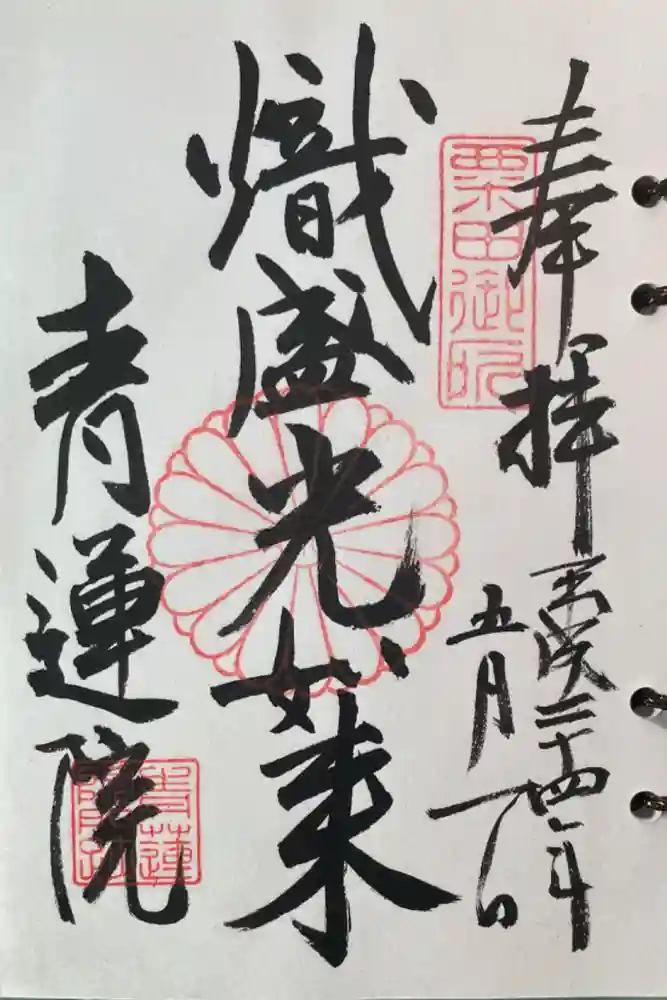 奉拝
平成二十四年
五月一日
粟田御所
熾盛光如来
青蓮院
青蓮